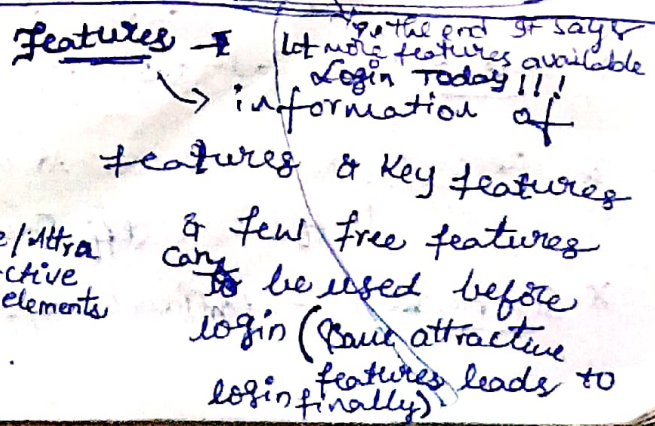 In the end It says
Features → Lot more features available
Login Today!!!
→ information of
features & Key features
& few free features
can be used before
login ( attractive
features leads to
login finally)
e/Attra
ctive
elements